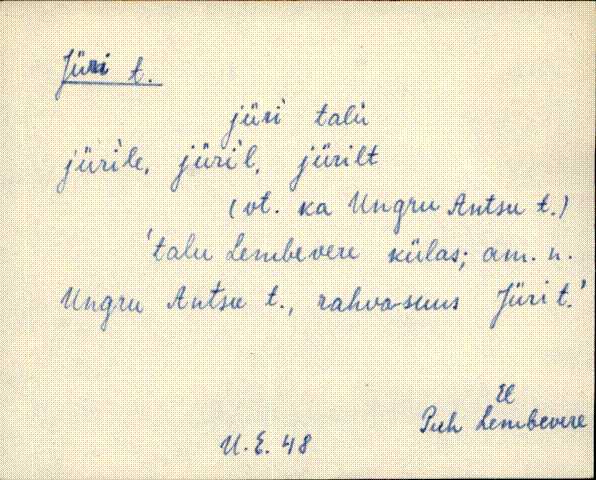 Jüri t.
jüri talu
jürile, jüril, jürilt
(vt. ka Ungru Antsu t.)
'talu Lembevere külas; am. n.
Ungru Antsu t., rahvasuus Jüri t.'
El
Puh Lembevere
U.E. 48